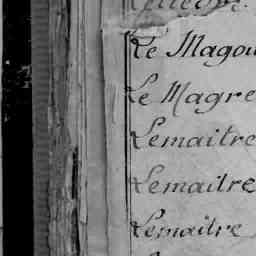 Le Magou
Le Magre
Lemaitre
Lemaitre
Lemaitre